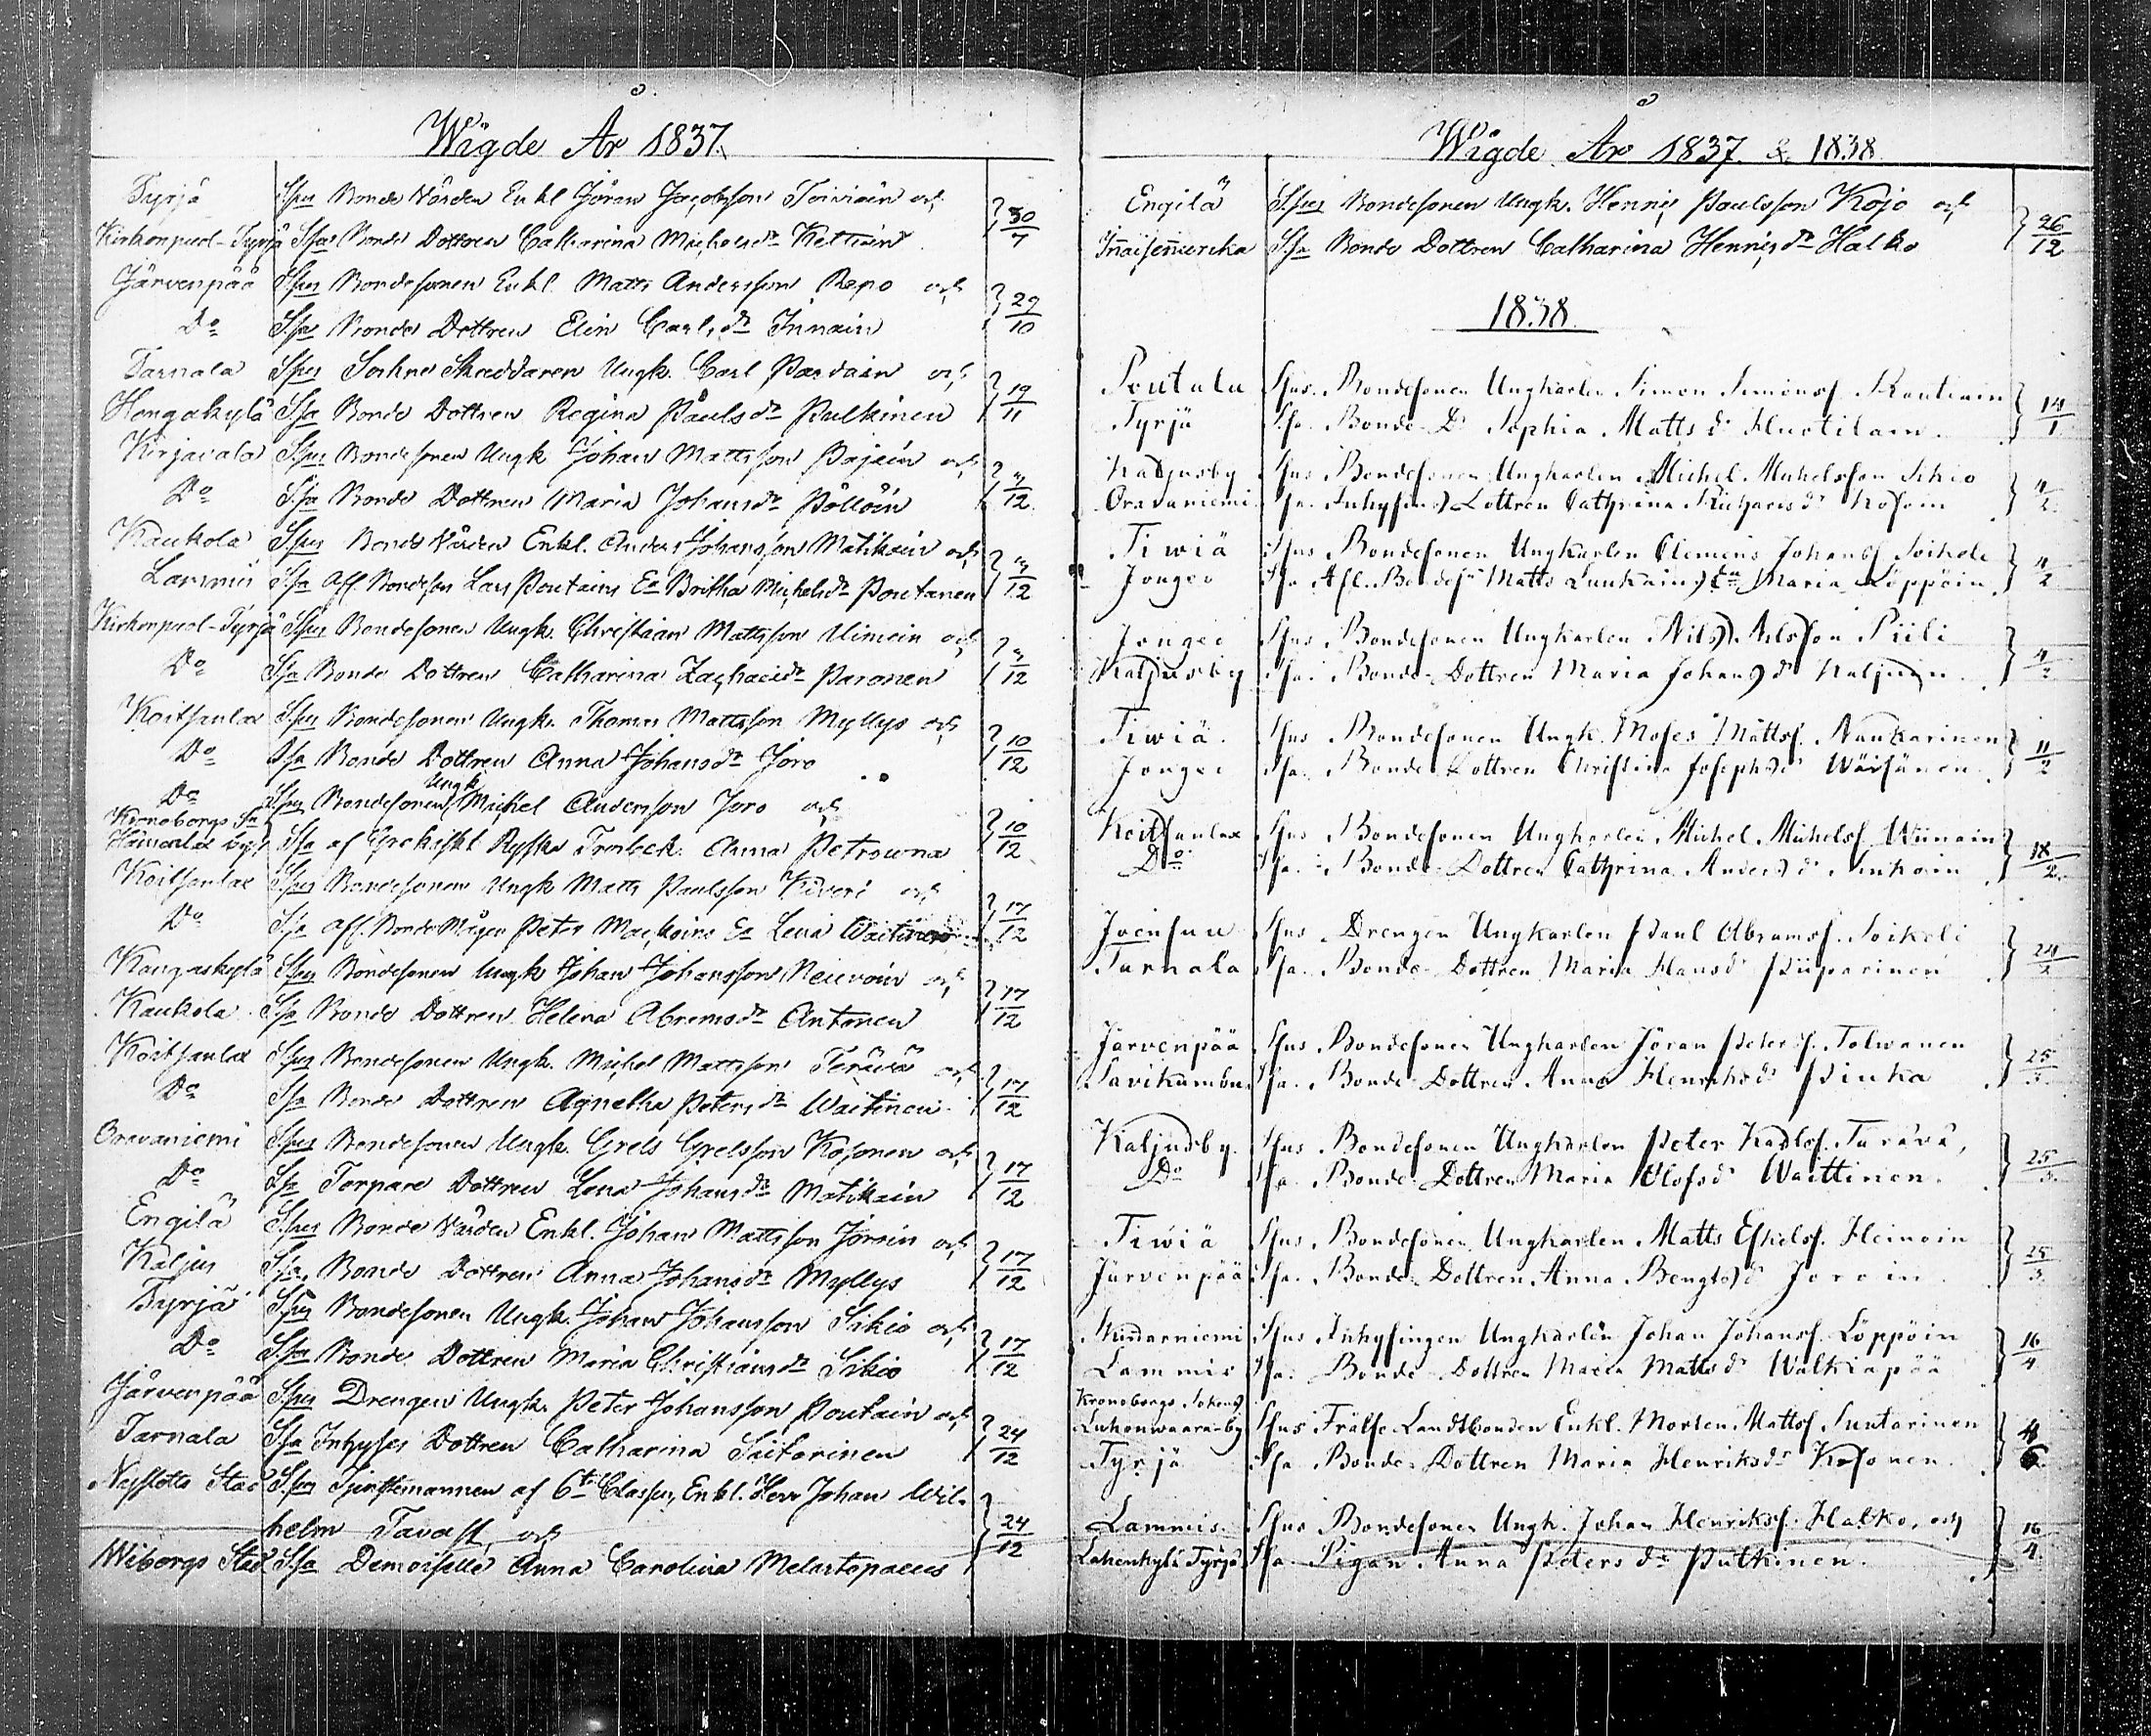 Wigde År 1837
Tyrjä Spus Bonde Vården Enkl Jöran Jacobsson Toiviain och 30/7
Kirkonpuol-Tyrjä Spa Bonde Dottren Catharina Michelsdr Kettuin
Järvenpää Spus Bondesonen Enkl. Matts Andersson Repo och 29/10
Do Spa Bonde Dottren Elin Carlsdr Innain
Tarnala Spus Sockne Skraddaren Ungk. Carl Pardain och 19/11
Hongakylä Spa Bonde Dottren Regina Påulsdr Pulkinen
Kirjavala Spus Bondesonen Ungk Johan Mattsson Pajain och 3/12
Do Spa Bonde Dottren Maria Johansdr Pöllöin
Kaukola Spus Bonde Vården Enkl. Anders Johansson Matikain och 3/12
Lammis Spa Afl. Bondeson Lars Poutains Ea Britha Michelsdr Poutanen
Kirkonpuol-Tyrjä Spus Bondesonen Ungk. Christian Mattsson Uimoin och 3/12
Do Spa Bonde Dottren Catharina Zachariedr Paronen
Koitsanlax Spus Bondesonen Ungk. Thomas Mattsson Myllys och 10/12
Do Spa Bonde Dottren Anna Johansdr Joro
Ungk
Do Spus Bondesonen Michel Andersson Joro och 10/12
Kronoborgs Sn
by Spa af Grekiskt Ryska Trosbek. Anna Petrowna
Koitsanlax Spus Bondesonen Ungk Matts Paulsson Kiveri och 17/12
Do Spa Afl. Bonde Mågen Peter Ea Lena Waitinen
Kangaskylä Spus Bondesonen Ungk Johan Johansson Neuvoin och 17/12
Kaukola Spa Bonde Dottren Helena Abramsdr Antonen
Koitsanlax Spus Bondesonen Ungk. Michel Mattsson Terävä och 17/12
Do Spa Bonde Dottren Agnetha Petersdr Waitinen
Oravaniemi Spus Bondesonen Ungk. Grels Grelsson Kosonen och 17/12
Do Spa Torpare Dottren Lena Johansdr Matikain
Engilä Spus Bonde Vården Enkl. Johan Mattsson Jorain och 17/12
Kaljus Spa Bonde Dottren Anna Johansdr Myllys
Tyrjä Spus Bondesonen Ungk. Johan Johansson Sikio och 17/12
Do Spa Bonde Dottren Maria Christiansdr Sikio
Järvenpää Spus Drengen Ungk. Peter Johansson Poutain och 24/12
Tarnala Spa Inhyses Dottren Catharina Saitarinen
Nyslotts Stad Spus Tjenstemannen af 6te Classen, Enkl. Herr Johan Wil-
helm Tavast och 24/12
Wiborgs Stad Spa Demoiselle Anna Carolina Melartopaeus
Wigde År 1837 & 1838
Engilä Spus Bondesonen Ungk. Henric Paulsson Kojo och 26/12
Inaisenniemka Spa Bonde Dottren Catharina Henricsdr Halko
1838
Poutala Spus Bondesonen Ungkarlen Simon Simonsf. Routiain 14/1
Tyrjä Spa. Bonde D. Sophia Mattsdr Huotilain
Kaljusby Spus Bondesonen Ungkarlen Michel Michelsson Sikio 4/2
Oravaniemi Spa. Inhysings Dottren Cathrina Kosoin
Tiwiä Spus Bondesonen Ungkarlen Clemens Johansf. Soikeli 4/2
Jongeo Spa Afl. Bondesn Matts Luukains Ea Maria Löppöin
Jongeo Spus Bondesonen Ungkarlen Nils Nilsson Piili 4/2
Kaljusby Spa. Bonde-Dottren Maria Johansdr Kaljuin
Tiwiä Spus Bondesonen Ungk. Moses Mattsf. Naukarinen 11/2
Jongeo Spa. Bonde Dottren Christina Josephsdr Wäisänen
Koitsanlax Spus Bondesonen Ungkarlen Michel Michelsf. Wiinain 18/2
Do Spa. Bonde-Dottren Cathrina Andersdr Sinkoin
Joensuu Spus Drengen Ungkarlen Paul Abramsf. Soikeli 24/2
Tarnala Spa. Bonde-Dottren Maria Hansdr Piiparinen
Järvenpää Spus Bondesonen Ungkarlen Jöran Petersf. Tolwanen 25/3
Savikumbu Spa. Bonde-Dottren Anna Henriksdr Piuka
Kaljusby Spus Bondesonen Ungkarlen Peter Karlsf. Tarävä, 25/3
Do Spa. Bonde-Dottren Maria Olofsdr Waittinen
Tiwiä Spus Bondesonen Ungkarlen Matts Eskelsf. Heinoin 25/3
Järvenpää Spa. Bonde-Dottren Anna Bengtsdr Joroin
Mudarniemi Spus Inhysingen Ungkarlen Johan Johansf. Löppöin 16/4
Lammis Spa. Bonde-Dottren Maria Mattsdr Walkiapää
Kronoborgs Sokens
Lukonwaara-by Spus Frälse Landtbonden Enkl. Morten Mattsf. Suntarinen 4/6
Tyrjä Spa Bonde-Dottren Maria Henriksdr Kosonen
Lammis Spus Bondesonen Ungk. Johan Henriksf. Halko, och 16/4
Lahenkylä Tyrjä Spa Pigan Anna Petersdr Pulkinen.